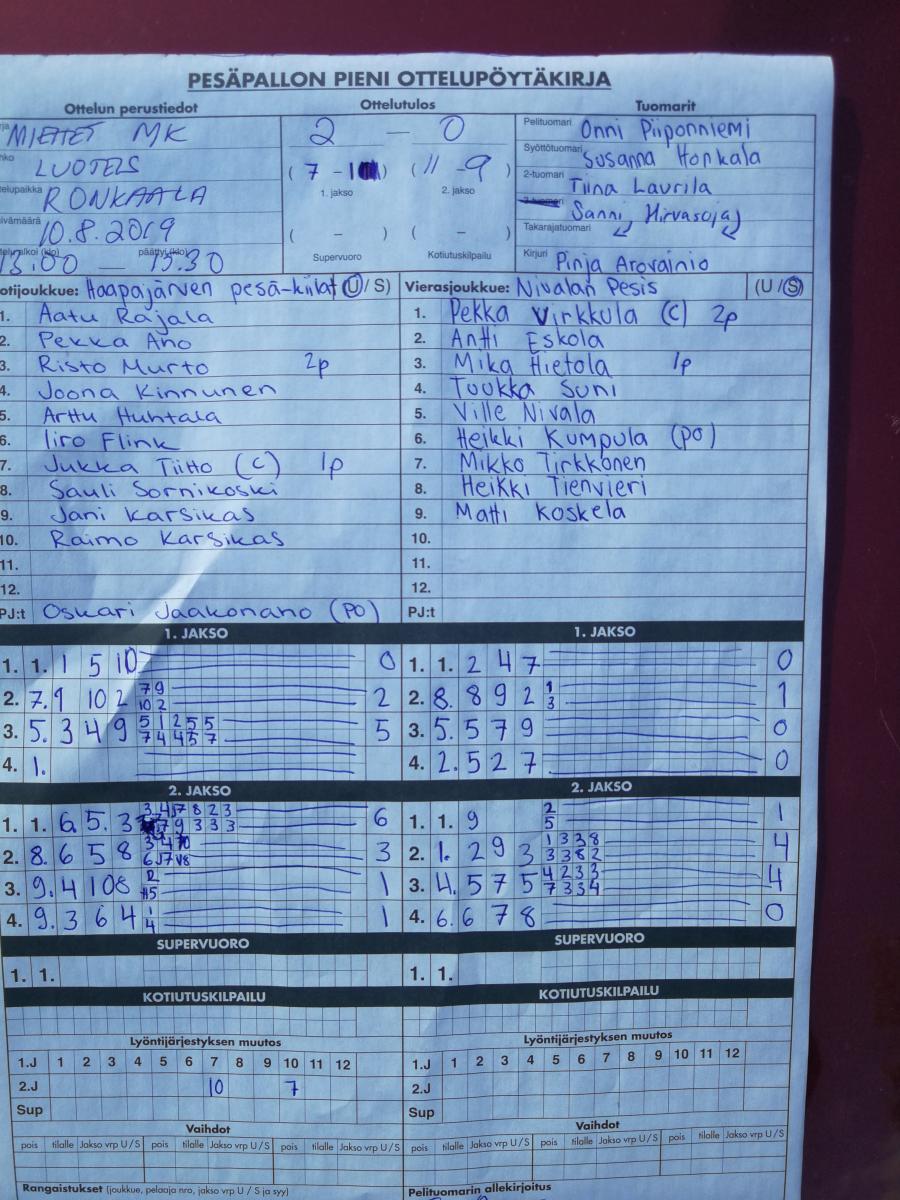 PESÄPALLON PIENI OTTELUPÖYTÄKIRJA
Ottelun perustiedot
MIEHET MK
LUOTEIS
elupaikka RONKAALA
ivämäärä 10.8.2019
telu alkoi (klo) päättyi (klo)
13.00 — 15.30
Ottelutulos
2 — 0
(7 - 1) (11 - 9)
1. jakso 2. jakso
( - ) ( - )
Supervuoro Kotiutuskilpailu
Tuomarit
Pelituomari Onni Piiponniemi
Syöttötuomari Susanna Honkala
2-tuomari Tiina Laurila
3-tuomari Sanni Hirvasoja
Takarajatuomari
Kirjuri Pinja Arovainio
otijoukkue: Haapajärven pesä-kiilat (U / S)
1. Aatu Rajala
2. Pekka Aho
3. Risto Murto 2p
4. Joona Kinnunen
5. Arttu Huhtala
6. Iiro Flink
7. Jukka Tiitto (C) 1p
8. Sauli Sornikoski
9. Jani Karsikas
10. Raimo Karsikas
11.
12.
PJ:t Oskari Jaakonaho (PO)
Vierasjoukkue: Nivalan Pesis (U / S)
1. Pekka Virkkula (C) 2p
2. Antti Eskola
3. Mika Hietola 1p
4. Tuukka Suni
5. Ville Nivala
6. Heikki Kumpula (PO)
7. Mikko Tirkkonen
8. Heikki Tienvieri
9. Matti Koskela
10.
11.
12.
PJ:t
1. JAKSO
1. 1. 1 5 10 0
2. 7. 9 10 2 7 9 2
10 2
3. 5. 3 4 9 5 1 2 5 5 5
7 4 4 5 7
4. 1.
1. JAKSO
1. 1. 2 4 7 0
2. 8. 8 9 2 1 1
3
3. 5. 5 7 9 0
4. 2. 5 2 7 0
2. JAKSO
1. 1. 6 5 3 3 4 7 8 2 3 6
7 9 3 3 3
2. 8. 6 5 8 3 4 10 3
6 7 8
3. 9. 4 10 8 2 1
5
4. 9. 3 6 4 1 1
4
2. JAKSO
1. 1. 9 2 1
5
2. 1. 2 9 3 1 3 3 8 4
3 3 8 2
3. 4. 5 7 5 4 2 3 3 4
7 3 3 4
4. 6. 6 7 8 0
SUPERVUORO
1. 1.
SUPERVUORO
1. 1.
KOTIUTUSKILPAILU
KOTIUTUSKILPAILU
Lyöntijärjestyksen muutos
1.J 1 2 3 4 5 6 7 8 9 10 11 12
2.J 10 7
Sup
Lyöntijärjestyksen muutos
1.J 1 2 3 4 5 6 7 8 9 10 11 12
2.J
Sup
Vaihdot
pois tilalle Jakso vrp U / S pois tilalle Jakso vrp U / S pois tilalle Jakso vrp U / S
Vaihdot
pois tilalle Jakso vrp U / S pois tilalle Jakso vrp U / S pois tilalle Jakso vrp U / S
Rangaistukset (joukkue, pelaaja nro, jakso vrp U / S ja syy)
Pelituomarin allekirjoitus